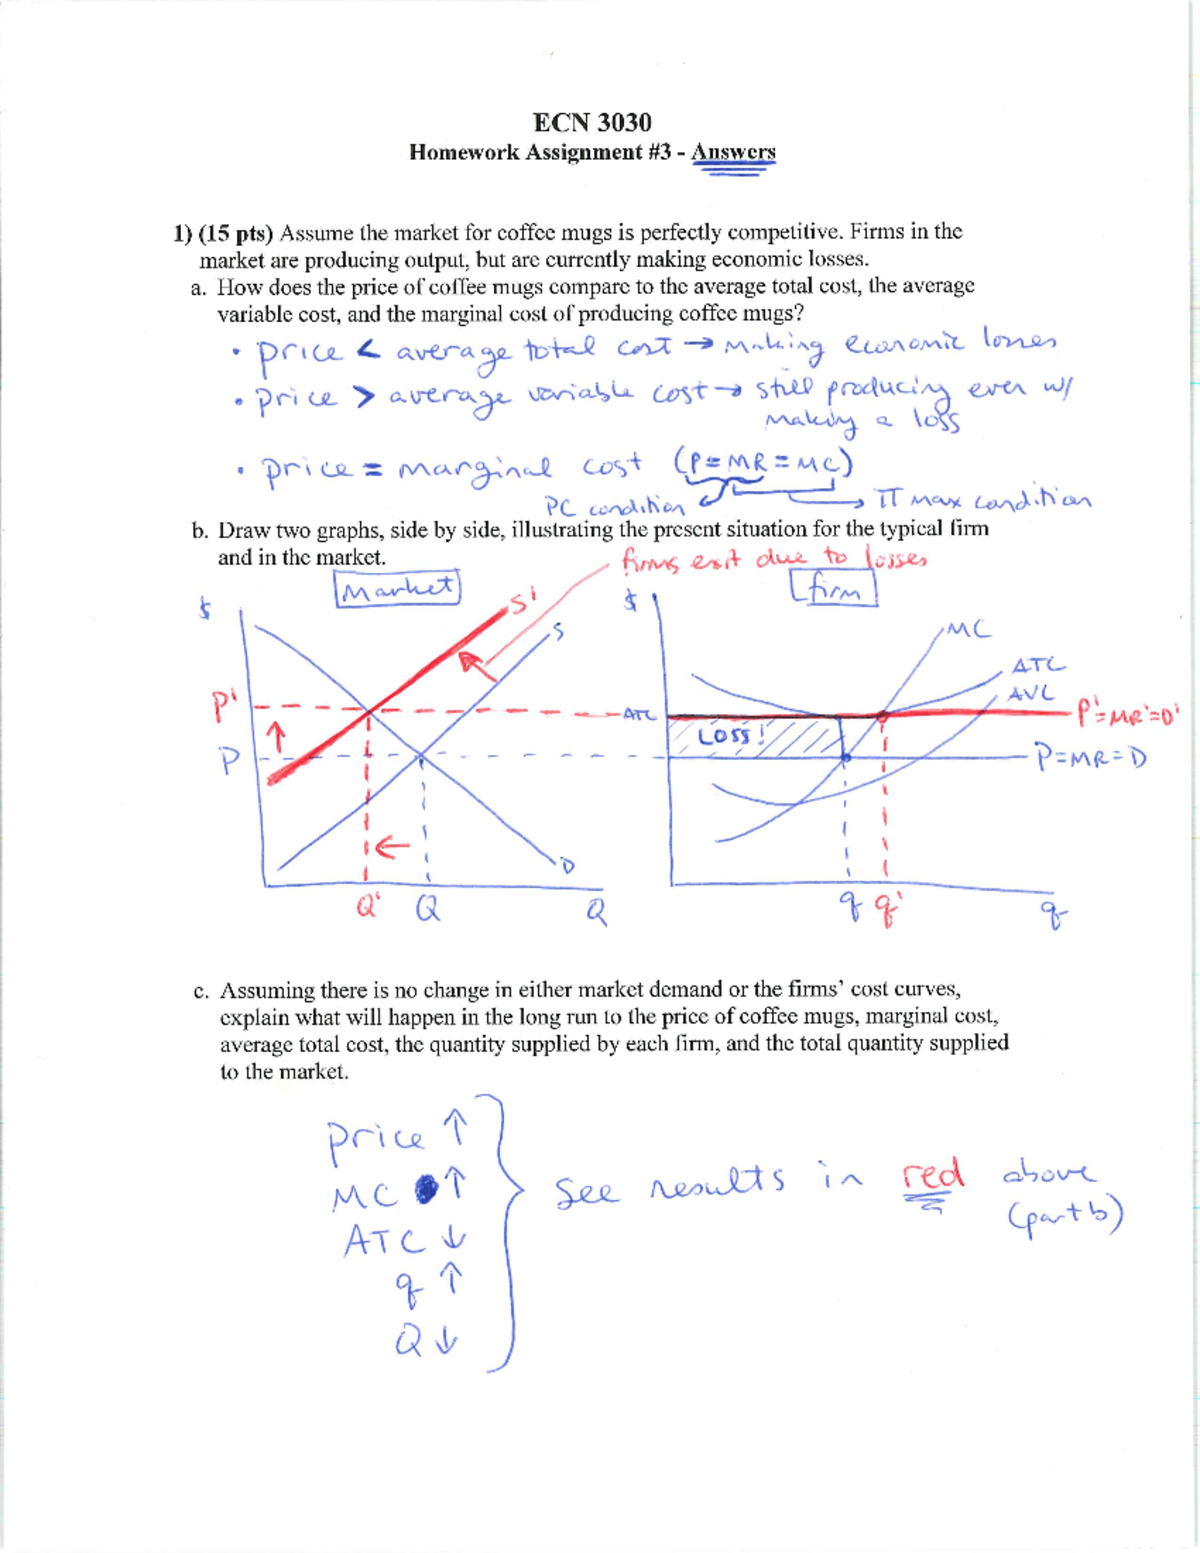 ECN 3030
Homework Assignment #3 - Answers
1) (15 pts) Assume the market for coffee mugs is perfectly competitive. Firms in the
market are producing output, but are currently making economic losses.
a. How does the price of coffee mugs compare to the average total cost, the average
variable cost, and the marginal cost of producing coffee mugs?
• price < average total cost → making economic losses
• price > average variable cost → still producing even w/
making a loss
• price = marginal cost (P=MR=MC)
PC condition π max condition
b. Draw two graphs, side by side, illustrating the present situation for the typical firm
and in the market.
firms exit due to losses
Market
firm
$ S' S D
P' P
Q' Q Q
$ MC
ATC
AVC
ATC P'=MR'=D'
LOSS!
P=MR=D
q q' q
c. Assuming there is no change in either market demand or the firms' cost curves,
explain what will happen in the long run to the price of coffee mugs, marginal cost,
average total cost, the quantity supplied by each firm, and the total quantity supplied
to the market.
price ↑
MC ↑
ATC ↓
q ↑
Q ↓
see results in red above
(part b)